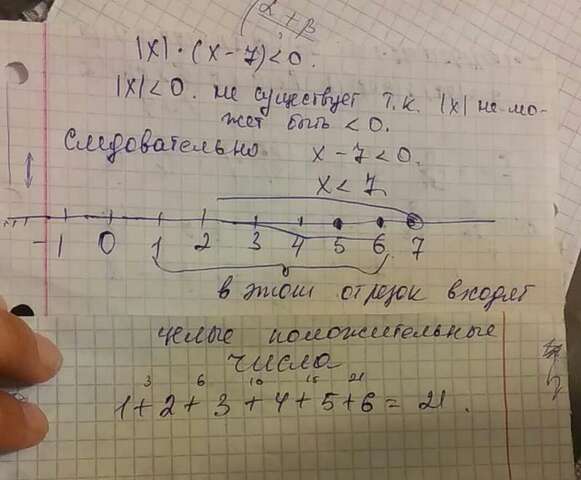 (α + β
|x| · (x - 7) < 0.
|x| < 0. не существует т.к. |x| не мо-
жет быть < 0.
Следовательно x - 7 < 0.
x < 7
-1 0 1 2 3 4 5 6 7
в этот отрезок входят
целые положительные
числа
3 6 10 15 21
1 + 2 + 3 + 4 + 5 + 6 = 21.